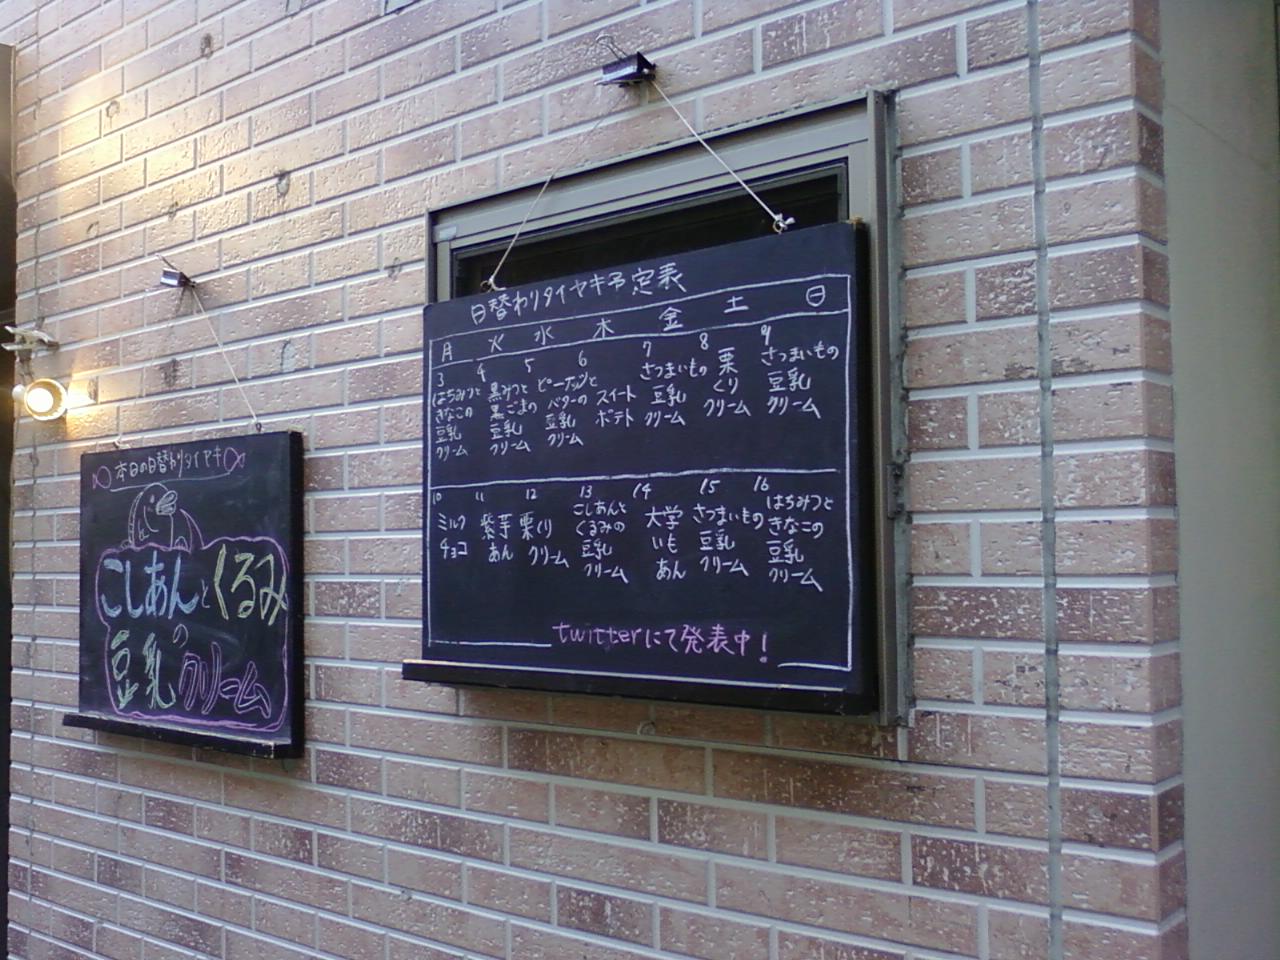 本日の日替わりタイヤキ
こしあんとくるみ
の
豆乳クリーム
日替わりタイヤキ予定表
月 火 水 木 金 土 日
3 4 5 6 7 8 9
はちみつと
きなこの
豆乳
クリーム
黒みつと
黒ごまの
豆乳
クリーム
ピーナッツと
バターの
豆乳
クリーム
スイート
ポテト
さつまいもの
豆乳
クリーム
栗
くり
クリーム
さつまいもの
豆乳
クリーム
10 11 12 13 14 15 16
ミルク
チョコ
紫芋
あん
栗くり
クリーム
こしあんと
くるみの
豆乳
クリーム
大学
いも
あん
さつまいもの
豆乳
クリーム
はちみつと
きなこの
豆乳
クリーム
twitterにて発表中!